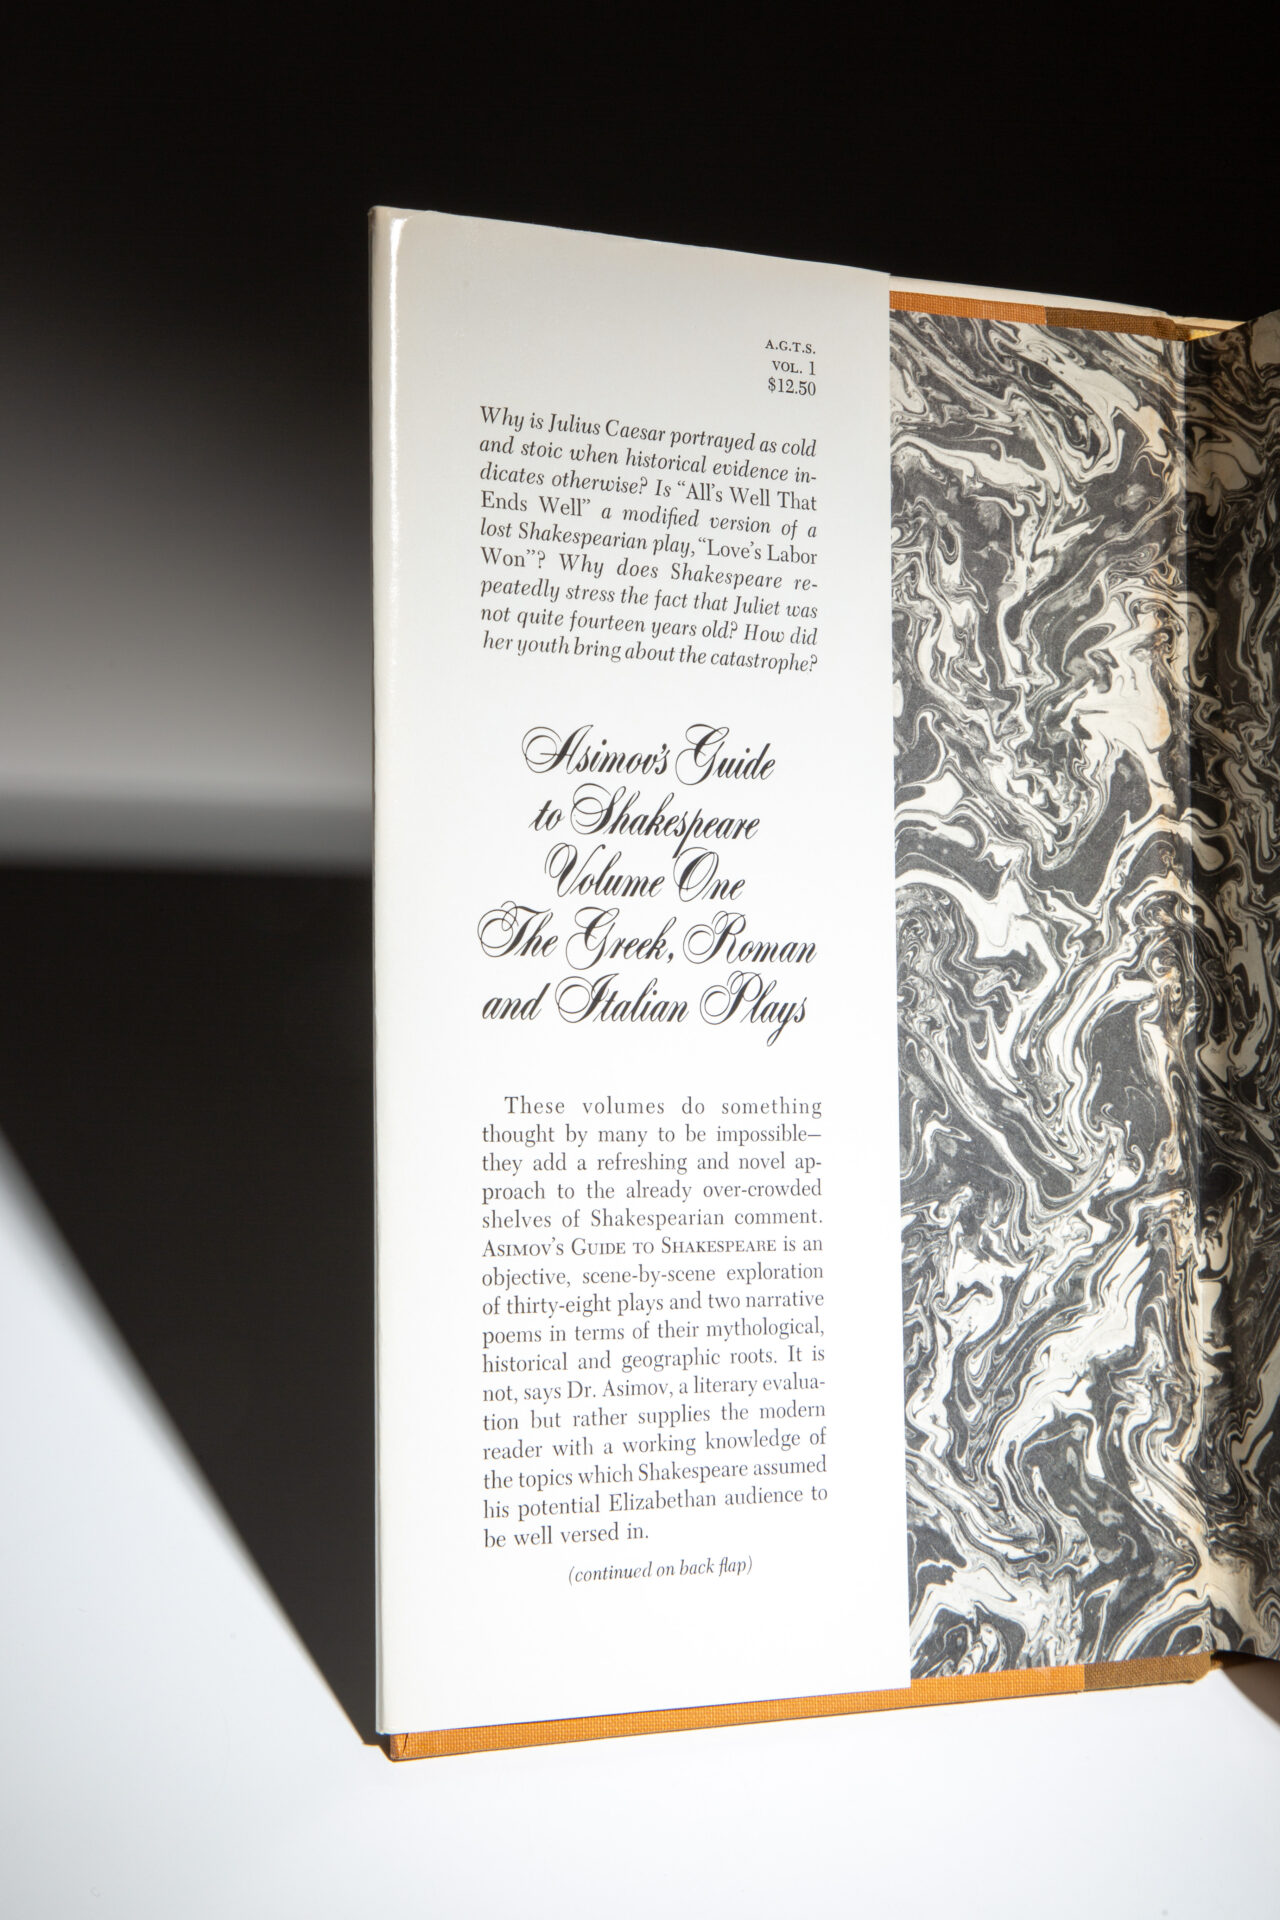 A.G.T.S.
VOL. 1
$12.50
Why is Julius Caesar portrayed as cold
and stoic when historical evidence in-
dicates otherwise? Is “All’s Well That
Ends Well” a modified version of a
lost Shakespearian play, “Love’s Labor
Won”? Why does Shakespeare re-
peatedly stress the fact that Juliet was
not quite fourteen years old? How did
her youth bring about the catastrophe?
Asimov’s Guide
to Shakespeare
Volume One
The Greek, Roman
and Italian Plays
These volumes do something
thought by many to be impossible—
they add a refreshing and novel ap-
proach to the already over-crowded
shelves of Shakespearian comment.
ASIMOV’S GUIDE TO SHAKESPEARE is an
objective, scene-by-scene exploration
of thirty-eight plays and two narrative
poems in terms of their mythological,
historical and geographic roots. It is
not, says Dr. Asimov, a literary evalua-
tion but rather supplies the modern
reader with a working knowledge of
the topics which Shakespeare assumed
his potential Elizabethan audience to
be well versed in.
(continued on back flap)